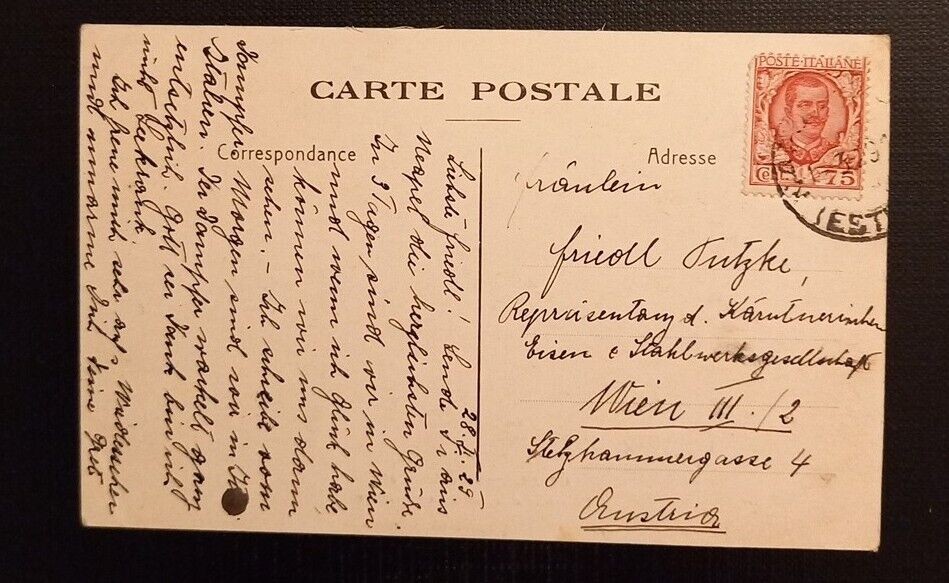 CARTE POSTALE
Correspondance
Adresse
POSTE ITALIANE
75
(EST
28. 29
Liebste Friedl! Sende Dir aus
Neapel die herzlichsten Grüße.
In 3 Tagen sind wir in Wien
und wenn ich Glück habe
können wir uns dann
sehen. – Ich schreibe vom
Dampfer. Morgen sind wir in
Italien. Der Dampfer wackelt ganz
entsetzlich. Gott sei Dank bin ich
nicht seekrank
Ich freue mich sehr aufs Wiedersehen
und umarme Deine
Fräulein
Friedl Putzke,
Repräsentanz d. Kärntnerischen
Eisen & Stahlwerksgesellschaft
Wien III./2
Stelzhammergasse 4
Austria